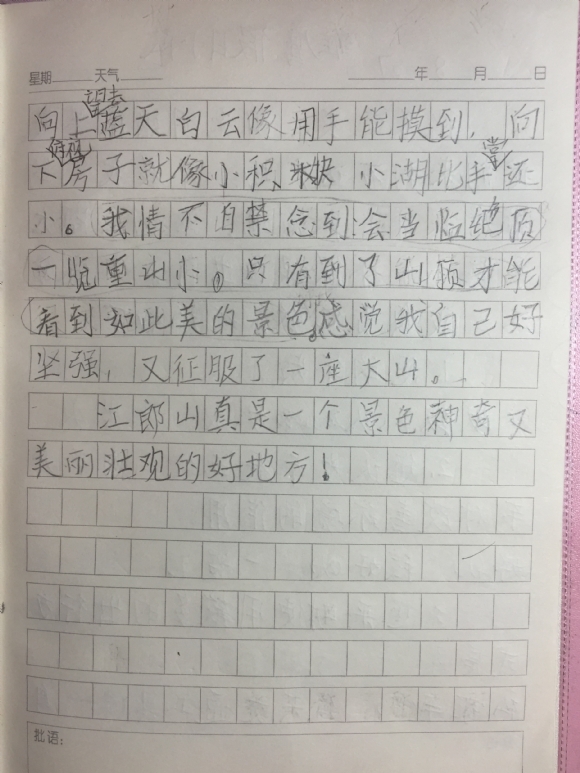 星期 天气 年 月 日
望去
向上蓝天白云像用手能摸到,向
俯视 掌
下房子就像小积木块小湖比手还
小。我情不自禁念到会当临绝顶
一览重山小。只有到了山顶才能
看到如此美的景色。感觉我自己好
坚强,又征服了一座大山。
江郎山真是一个景色神奇又
美丽壮观的好地方!
批语: